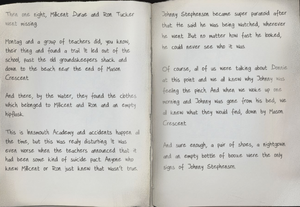 Then one night, Milicent Duran and Ron Tucker
went missing.
Monzag and a group of teachers did, you know,
their thing and found a trail. It led out of the
school, past the old groundskeepers shack, and
down to the beach near the end of Mason
Crescent.
And there, by the water, they found the clothes
which belonged to Milicent and Ron and an empty
hipflask.
This is Learmouth Academy and accidents happen all
the time, but this was really disturbing. It was
even worse when the teachers announced that it
had been some kind of suicide pact. Anyone who
knew Milicent or Ron just knew that wasn't true.
Johnny Stephenson became super paranoid after
that. He said he was being watched, wherever
he went. But no matter how fast he looked,
he could never see who it was.
Of course, all of us were talking about
at this point and we all knew why Johnny was
feeling the pinch. And when we woke up one
morning and Johnny was gone from his bed, we
all knew what they would find, down by Mason
Crescent.
And sure enough, a pair of shoes, a nightgown
and an empty bottle of booze were the only
signs of Johnny Stephenson.